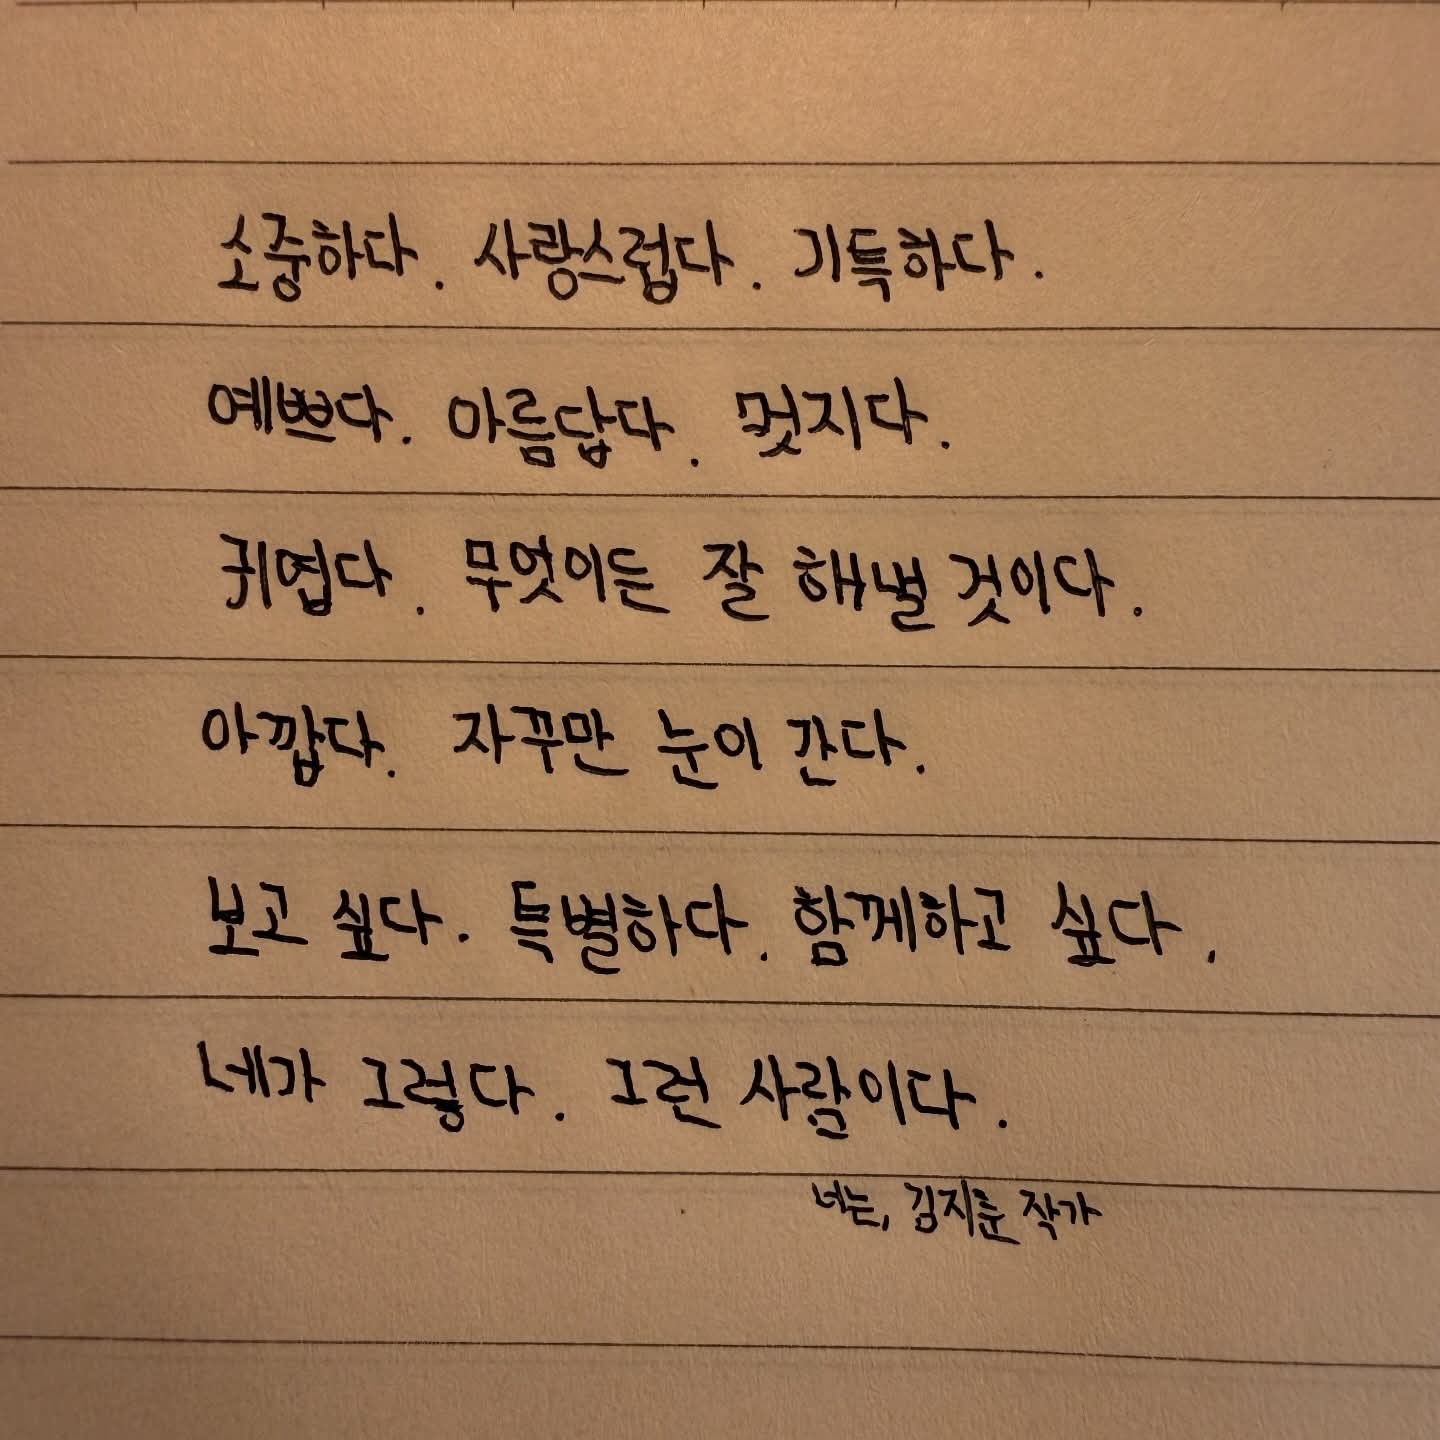 소중하다. 사랑스럽다. 기특하다.
예쁘다. 아름답다. 멋지다.
귀엽다. 무엇이든 잘 해낼 것이다.
아깝다. 자꾸만 눈이 간다.
보고 싶다. 특별하다. 함께하고 싶다.
네가 그렇다. 그런 사람이다.
너는, 김지훈 작가